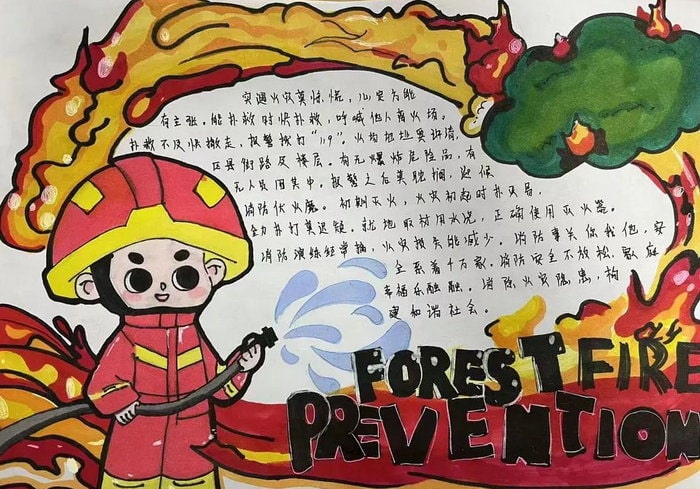 突遇火灾莫惊慌，心定方能
有主张。能扑救时快扑救，呼喊他人离火场。
扑救不及快撤走，报警拨打“119”。火灾地址莫讲错，
区县街路及楼层。有无爆炸危险品，有
无人员困其中。报警之后莫耽搁，迎候
消防伏火魔。初期灭火，火灾初起时扑灭易，
全力扑打莫迟疑。就地取材用水浇，正确使用灭火器。
消防演练经常搞，火灾损失能减少。消防事关你我他，安
全系着千万家。消防安全不放松，家庭
幸福乐融融。消除火灾隐患，构
建和谐社会。
FOREST FIRE
PREVENTION